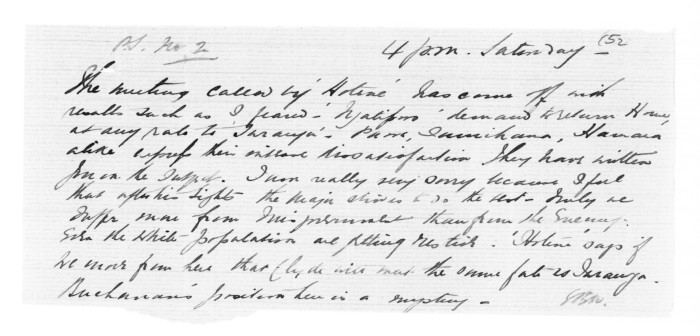 P.S. No 2
4 p.m. Saturday (52
The meeting called by 'Hotene' has come off with
results such as I feared - Ngatiporo' demand to return Home,
at any rate to 'Turanga' - Henare
alike express their extreme dissatisfaction They have written
you on the subject. I am really very sorry because I feel
that after his lights the Major strives to do the best - Truly we
suffer more from misgovernment than from the Enemy -
Even the white population are getting restive. 'Hotene' says if
we move from here that Clyde will meet the same fate as Turanga.
Buchanan's position here is a mystery -